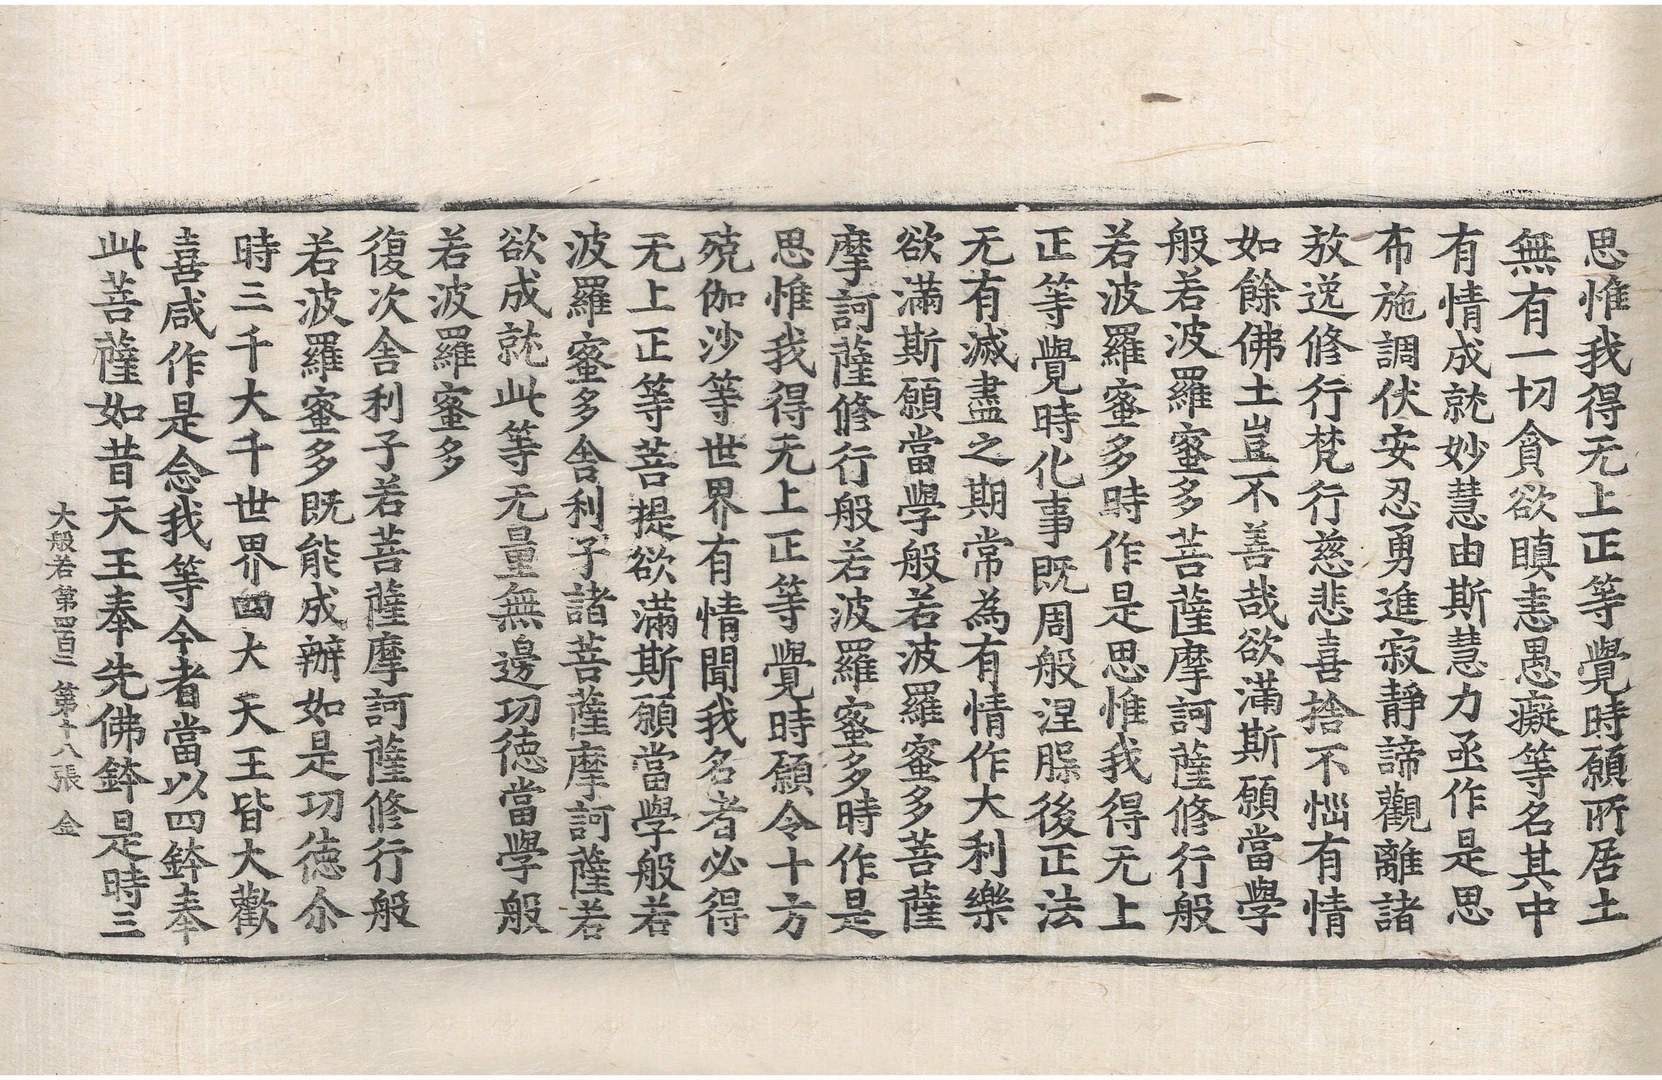 思惟我得无上正等覺時願所居土
無有一切貪欲瞋恚愚癡等名其中
有情成就妙慧由斯慧力丞作是思
布施調伏安忍勇進寂靜諦觀離諸
放逸修行梵行慈悲喜捨不惱有情
如餘佛土豈不善哉欲滿斯願當學
般若波羅蜜多菩薩摩訶薩修行般
若波羅蜜多時作是思惟我得无上
正等覺時化事既周般涅槃後正法
无有滅盡之期常為有情作大利樂
欲滿斯願當學般若波羅蜜多菩薩
摩訶薩修行般若波羅蜜多時作是
思惟我得无上正等覺時願令十方
殑伽沙等世界有情聞我名者必得
无上正等菩提欲滿斯願當學般若
波羅蜜多舍利子諸菩薩摩訶薩若
欲成就此等无量無邊功德當學般
若波羅蜜多
復次舍利子若菩薩摩訶薩修行般
若波羅蜜多既能成辦如是功德尒
時三千大千世界四大天王皆大歡
喜咸作是念我等今者當以四鉢奉
此菩薩如昔天王奉先佛鉢是時三
大般若第四百二 第十八張 金